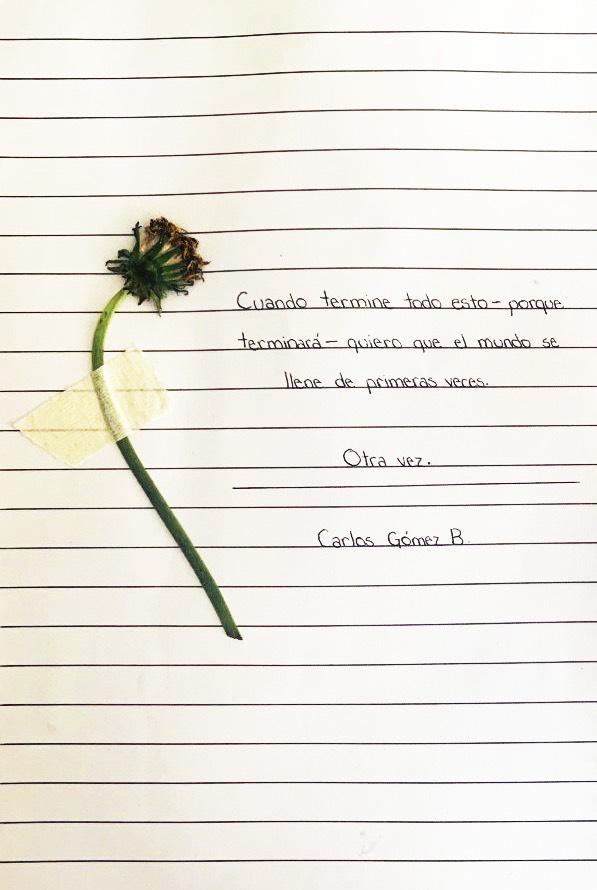 Cuando termine todo esto - porque
terminará - quiero que el mundo se
llene de primeras veces.
Otra vez.
Carlos Gómez B.